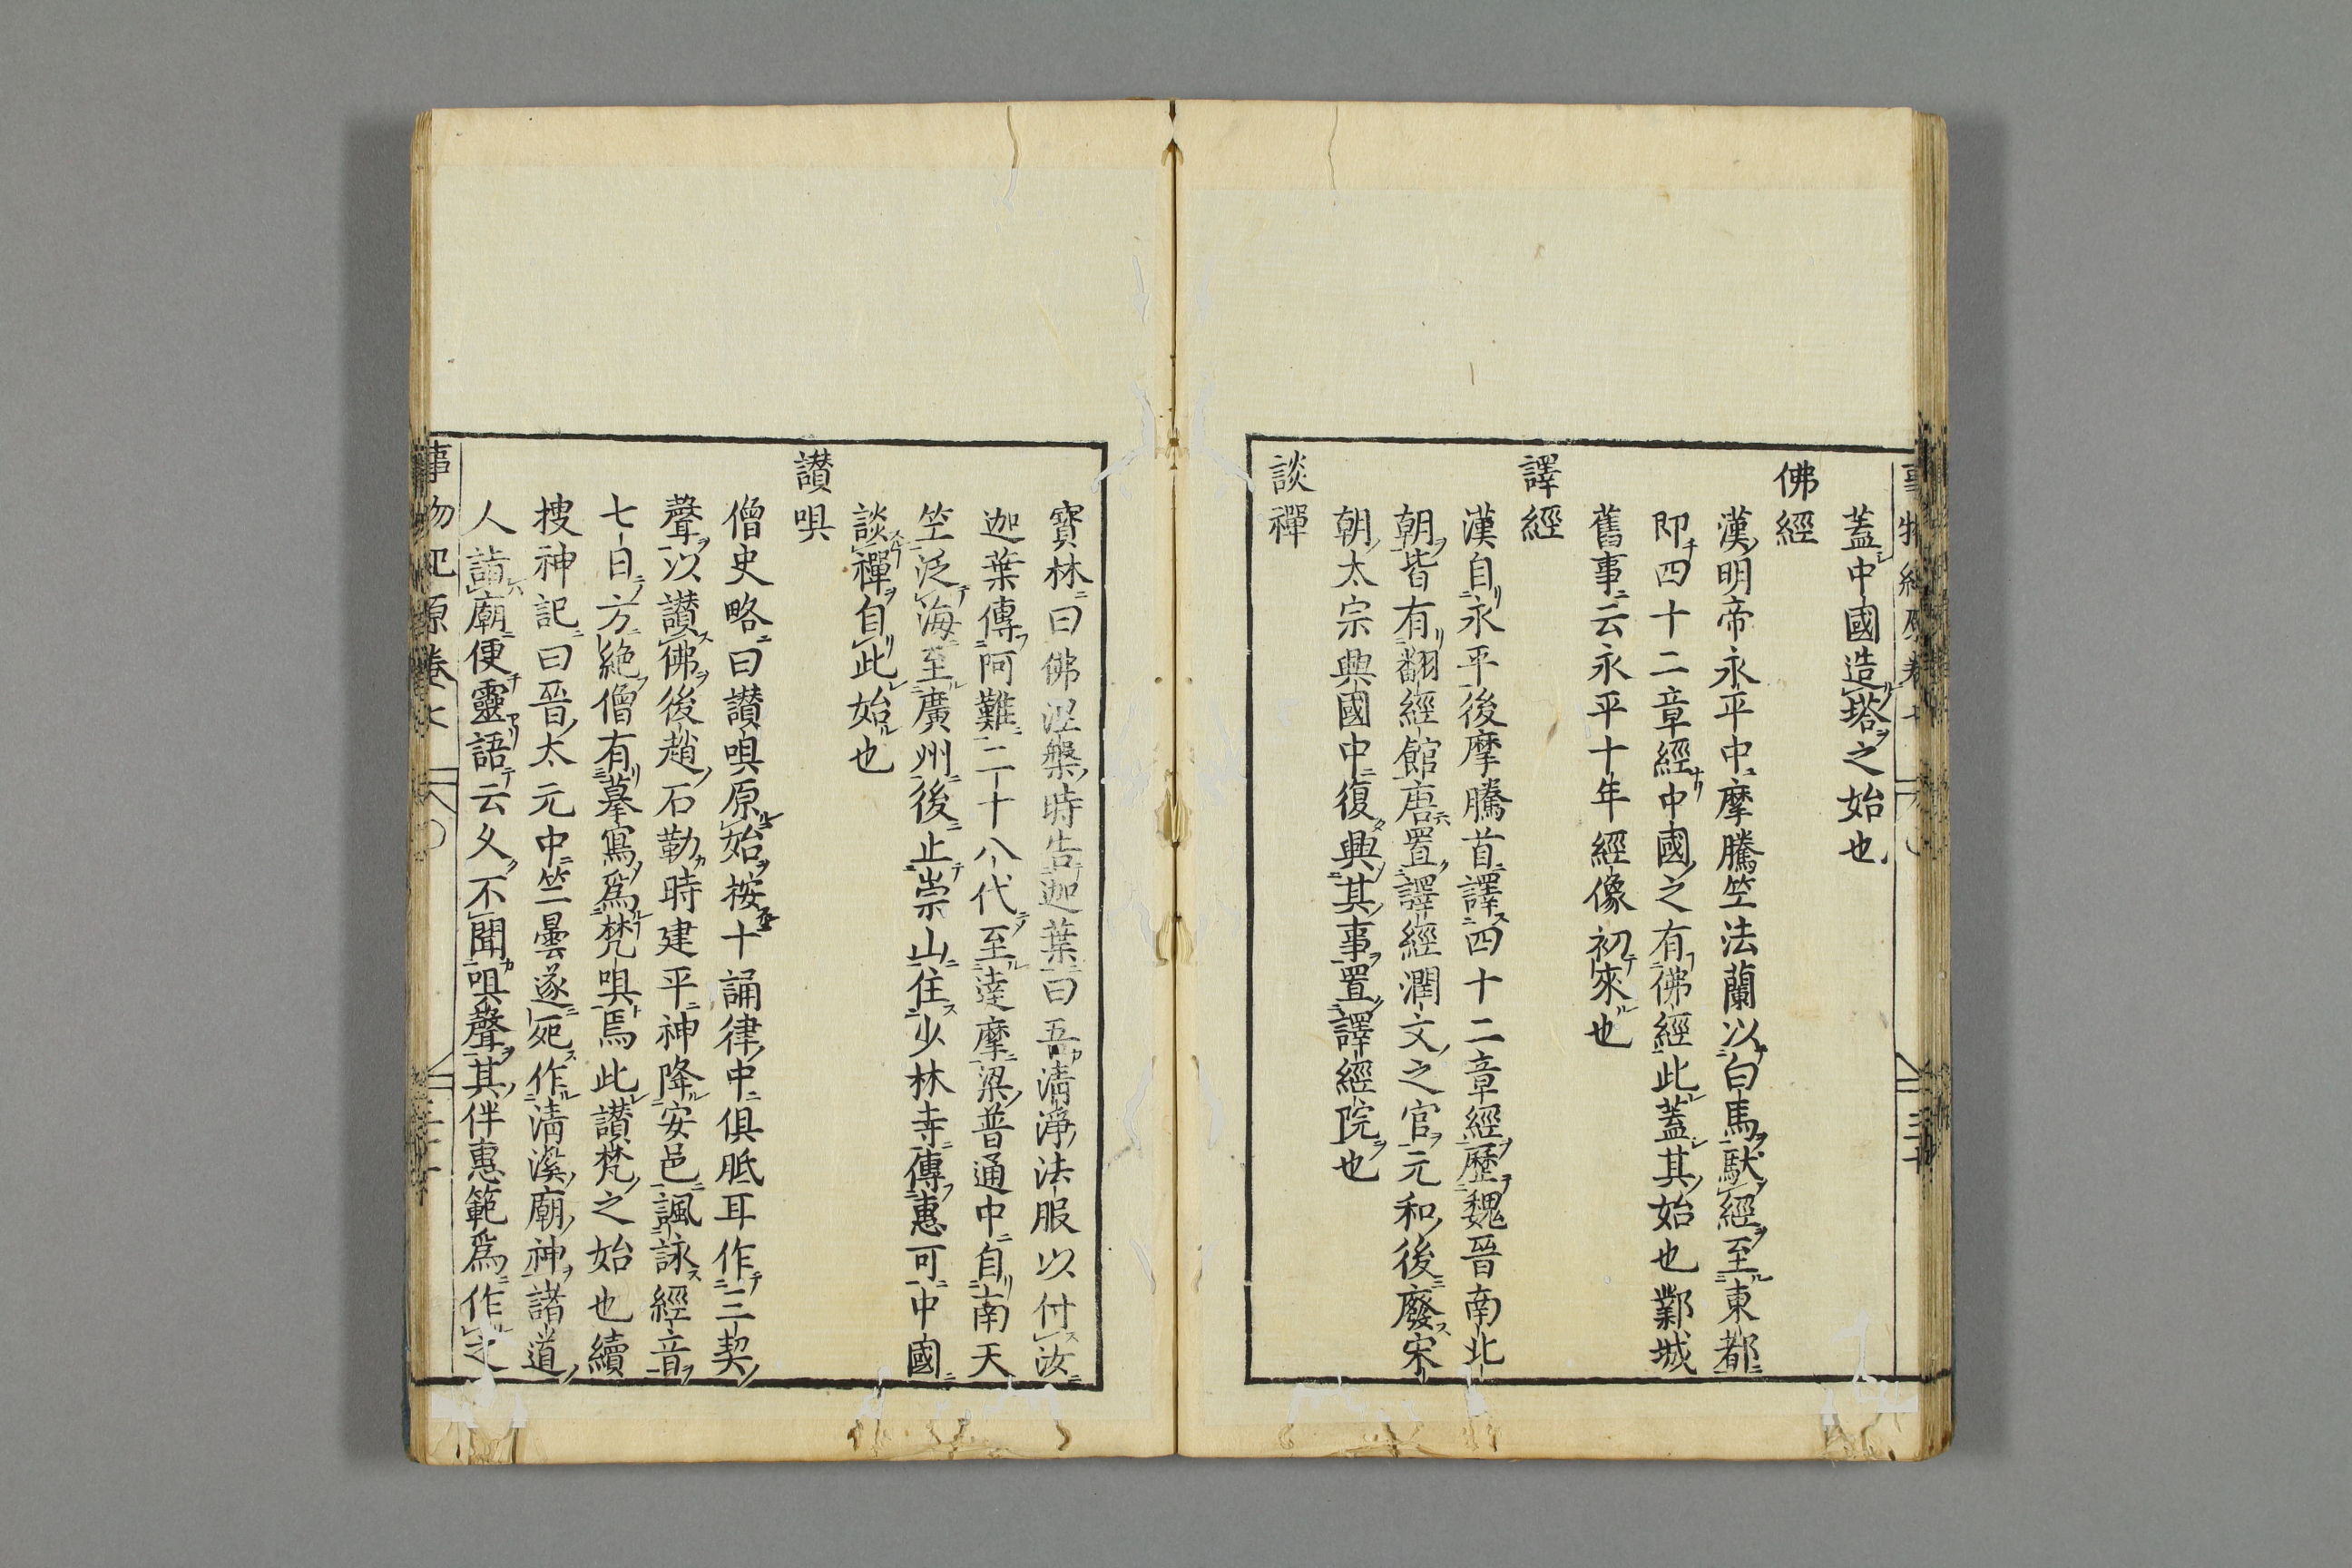 蓋中國造塔之始也
佛經
漢明帝永平中摩騰竺法蘭以白馬馱經至東都
即四十二章經中國之有佛經此蓋其始也鄴城
舊事云永平十年經像初來也
譯經
漢自永平後摩騰首譯四十二章經歷魏晉南北
朝皆有翻經館唐置譯經潤文之官元和後廢宋
朝太宗興國中復興其事置譯經院也
談禪
寶林曰佛涅槃時告迦葉曰吾清淨法服以付汝
迦葉傳阿難二十八代至達摩梁普通中自南天
竺泛海至廣州後止崇山住少林寺傳惠可中國
談禪自此始也
讃唄
僧史略曰讃唄原始按十誦律中俱胝耳作三契
聲以讃佛後趙石勒時建平神降安邑諷詠經音
七日方絶僧有摹寫爲梵唄焉此讃梵之始也續
搜神記曰晉太元中竺曇遂死作清溪廟神諸道
人詣廟便靈語云久不聞唄聲其伴惠範爲作之
事物紀原卷七